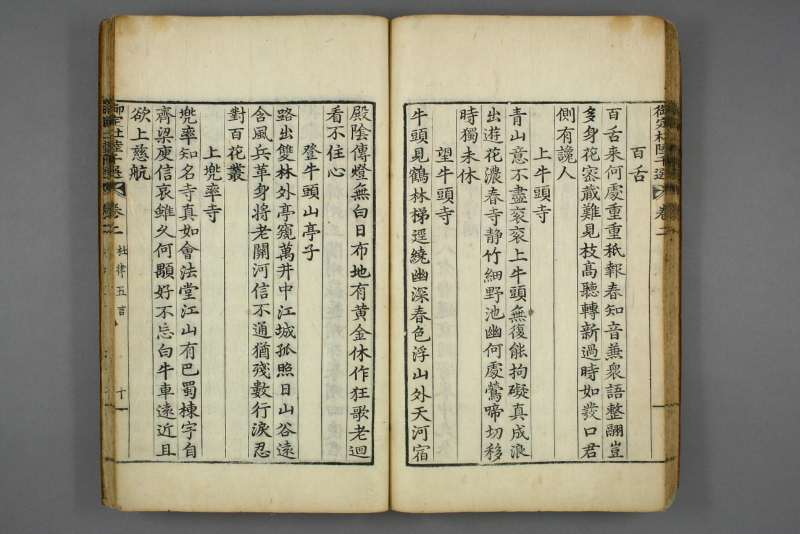 百舌
百舌来何處重重秪報春知音兼衆語整翮豈
多身花宻蔵難見枝髙聽轉新過時如發口君
側有讒人
上牛頭寺
青山意不盡衮衮上牛頭無復能拘礙真成浪
出遊花濃春寺静竹細野池幽何處鶯啼切移
時獨未休
望牛頭寺
牛頭見鶴林梯逕繞幽深春色浮山外天河宿
殿陰傳燈無白日布地有黄金休作狂歌老迴
看不住心
登牛頭山亭子
路出雙林外亭窺萬井中江城孤照日山谷遠
含風兵革身將老關河信不通猶殘數行淚忍
對百花叢
上兠率寺
兠率知名寺真如會法堂江山有巴蜀棟宇自
齊梁庾信哀雖乆何顒好不忘白牛車遠近且
欲上慈航
御定杜陸千選
卷二
杜律五言
十
御定杜陸千選
卷二